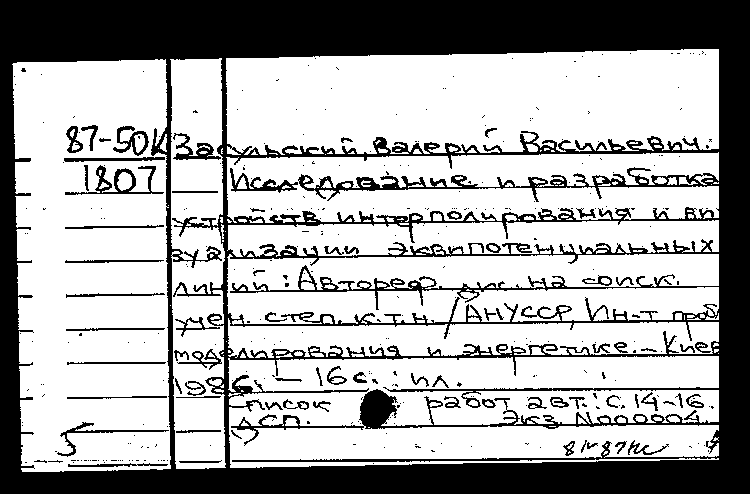 87-50К Засульский, Валерий Васильевич.
1807 Исследование и разработка
устройств интерполирования и ви
зуализации эквипотенциальных
линий : Автореф. дис. на соиск.
учен. степ. к.т.н. / АН УССР, Ин-т проб
моделирования и энергетике. – Киев
1986. – 16 с. : ил.
Список работ авт.: С. 14-16.
ДСП. Экз. N000004.
5